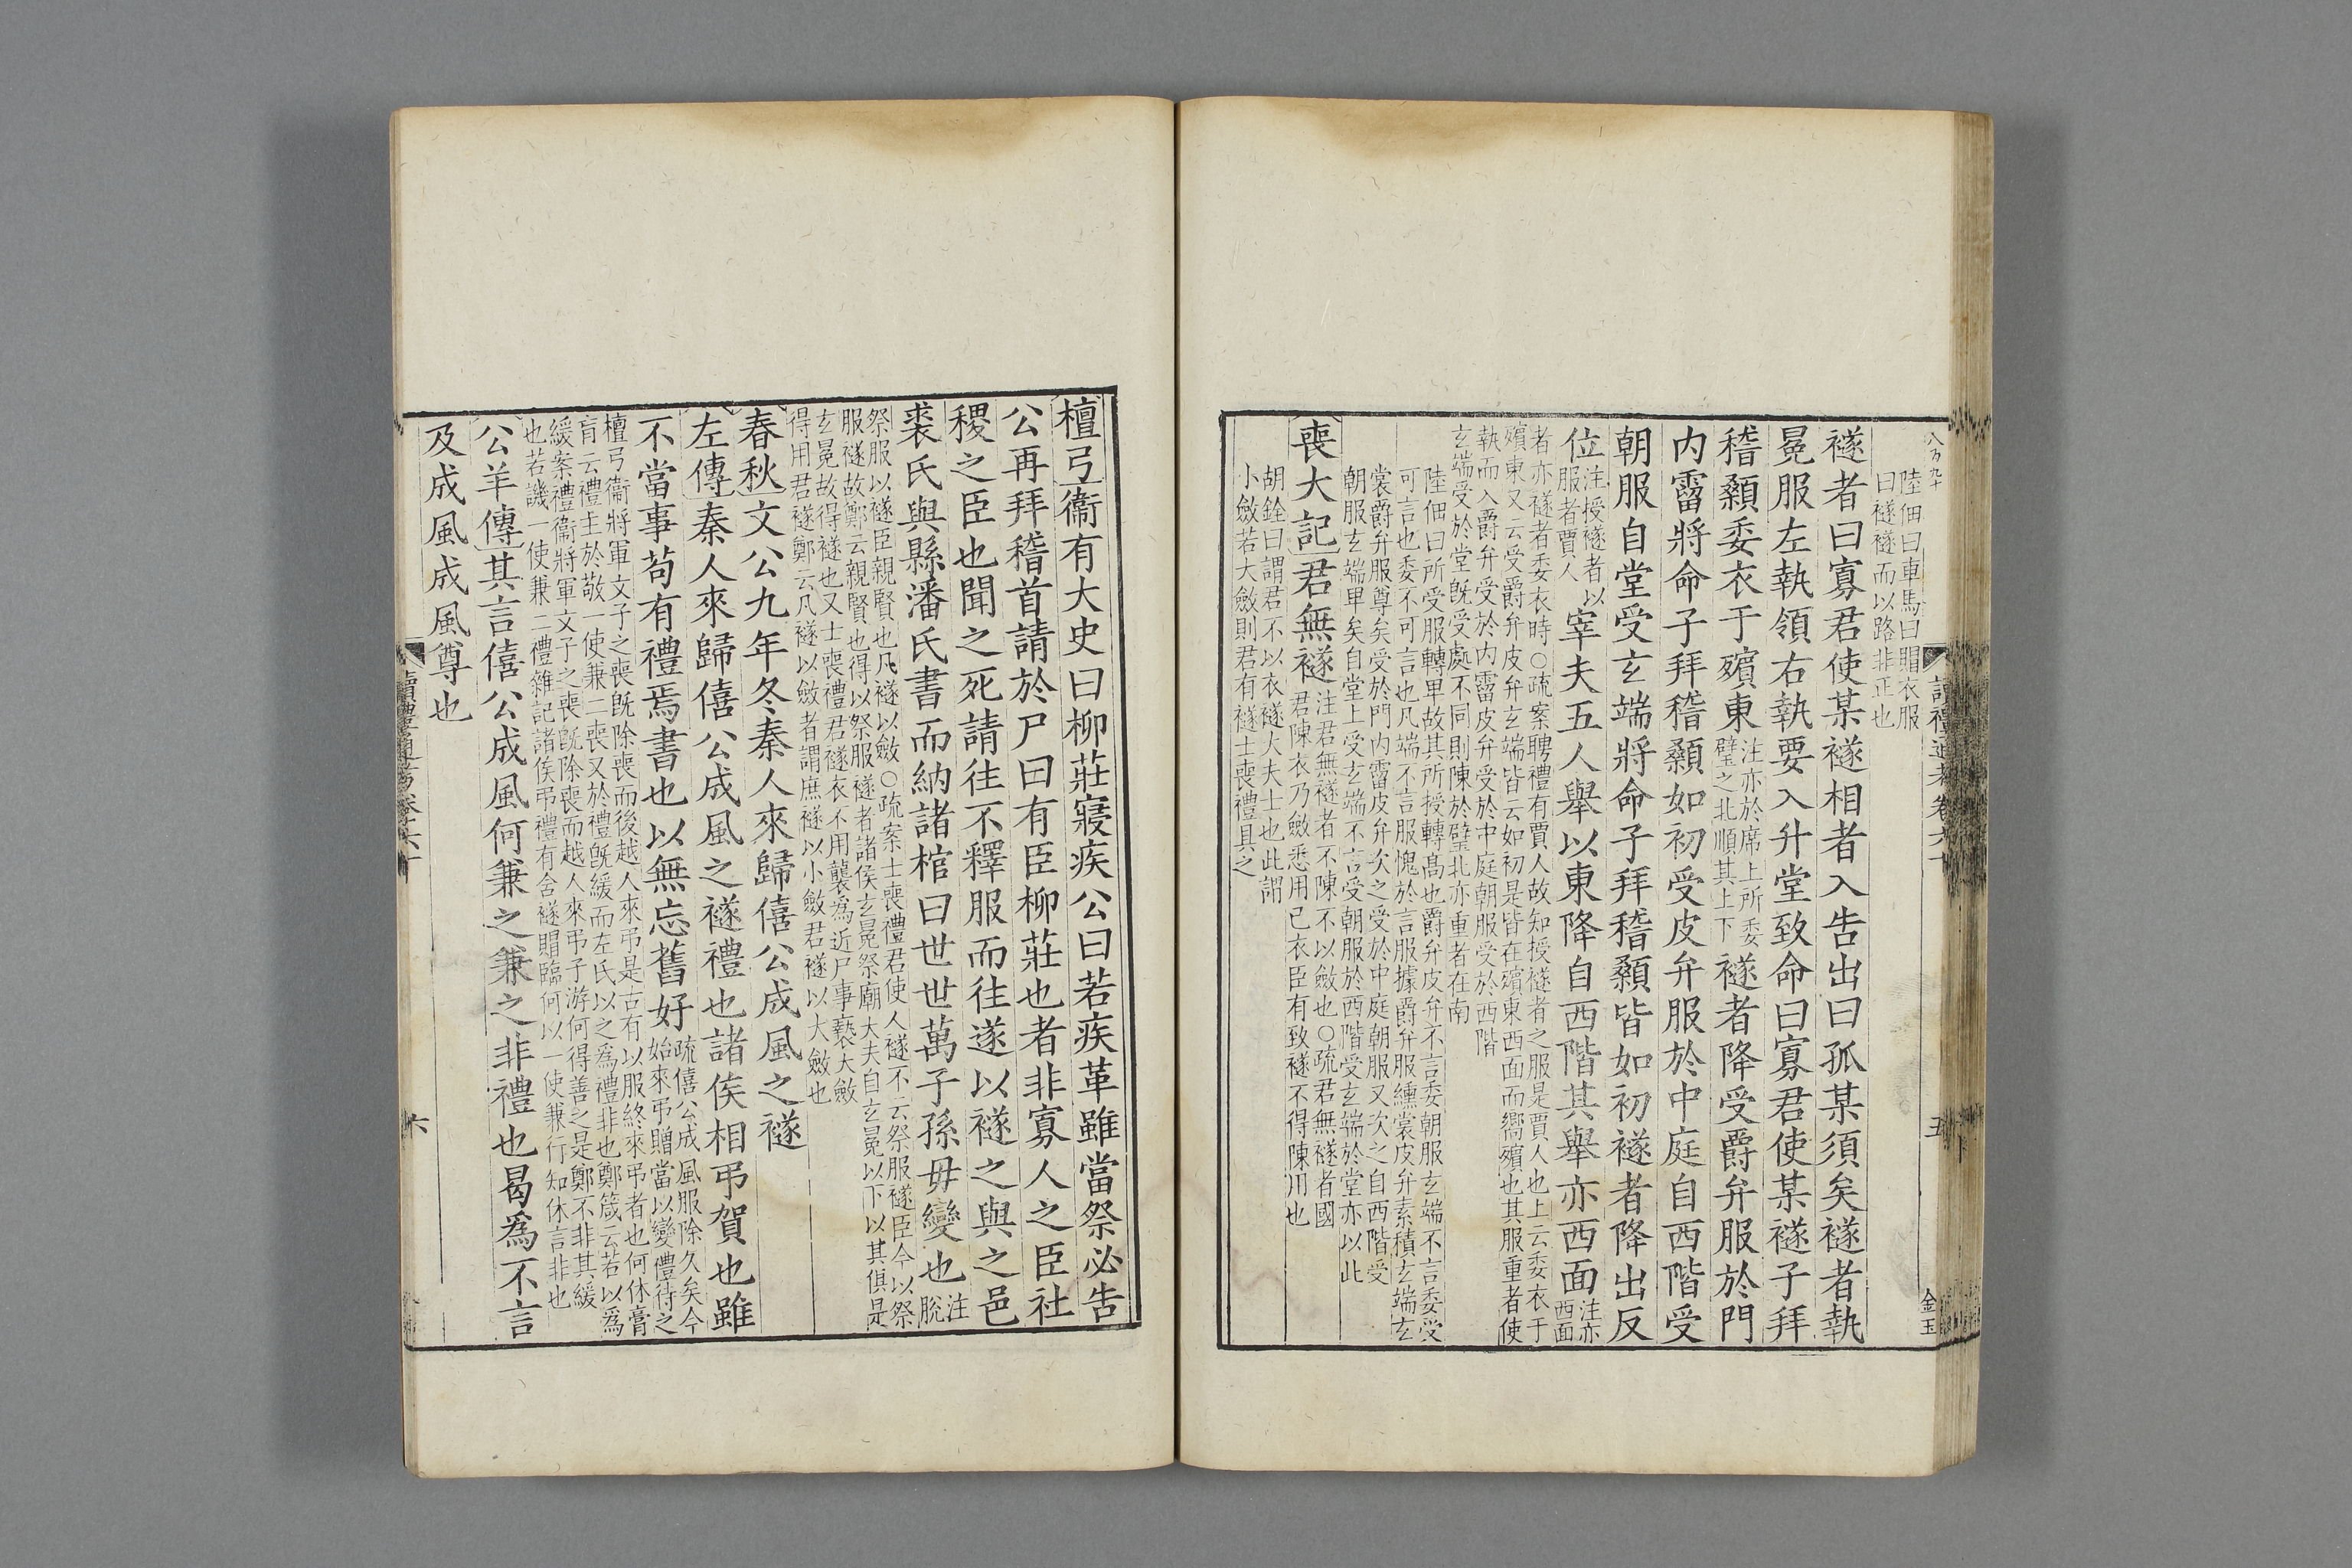 陸佃曰車馬曰賵衣服
曰襚襚而以路非正也
襚者曰寡君使某襚相者入告出曰孤某須矣襚者執
冕服左執領右執要入升堂致命曰寡君使某襚子拜
稽顙委衣于殯東注亦於席上所委璧之北順其上下襚者降受爵弁服於門
内霤將命子拜稽顙如初受皮弁服於中庭自西階受
朝服自堂受玄端將命子拜稽顙皆如初襚者降出反
位注授襚者以服者賈人宰夫五人舉以東降自西階其舉亦西面注亦西面
者亦襚者委衣時○疏案聘禮有賈人故知授襚者之服是賈人也上云委衣于
殯東又云受爵弁皮弁玄端皆云如初是皆在殯東西面而嚮殯也其服重者使
執而入爵弁受於内霤皮弁受於中庭朝服受於西階
玄端受於堂既受處不同則陳於璧北亦重者在南
陸佃曰所受服轉卑故其所授轉髙也爵弁皮弁不言委朝服玄端不言委受
可言也委不可言也凡端不言服愧於言服據爵弁服纁裳皮弁素積玄端玄
裳爵弁服尊矣受於門内霤皮弁次之受於中庭朝服又次之自西階受
朝服玄端卑矣自堂上受玄端不言受朝服於西階受玄端於堂亦以此
喪大記君無襚注君無襚者不陳不以斂也○疏君無襚者國君陳衣乃斂悉用已衣臣有致襚不得陳用也
胡銓曰謂君不以衣襚大夫士也此謂
小斂若大斂則君有襚士喪禮具之
讀禮通考卷六十
五
金玉
檀弓衞有大史曰柳莊寢疾公曰若疾革雖當祭必告
公再拜稽首請於尸曰有臣柳莊也者非寡人之臣社
稷之臣也聞之死請往不釋服而往遂以襚之與之邑
裘氏與縣潘氏書而納諸棺曰世世萬子孫毋變也注脱
祭服以襚臣親賢也凡襚以斂○疏案士喪禮君使人襚不云祭服襚臣今以祭
服襚故鄭云親賢也得以祭服襚者諸侯玄冕祭廟大夫自玄冕以下以其俱是
玄冕故得襚也又士喪禮君襚衣不用襲為近尸事褻大斂
得用君襚鄭云凡襚以斂者謂庶襚以小斂君襚以大斂也
春秋文公九年冬秦人來歸僖公成風之襚
左傳秦人來歸僖公成風之襚禮也諸侯相弔賀也雖
不當事苟有禮焉書也以無忘舊好疏僖公成風服除久矣今始來弔贈當以變禮待之
檀弓衞將軍文子之喪既除喪而後越人來弔是古有以服終來弔者也何休膏
肓云禮主於敬一使兼二喪又於禮既緩而左氏以之為禮非也鄭箴云若以為
緩案禮衞將軍文子之喪既除喪而越人來弔子游何得善之是鄭不非其緩
也若譏一使兼二禮雜記諸侯弔禮有含襚賵臨何以一使兼行知休言非也
公羊傳其言僖公成風何兼之兼之非禮也曷為不言
及成風成風尊也
讀禮通考卷六十
六